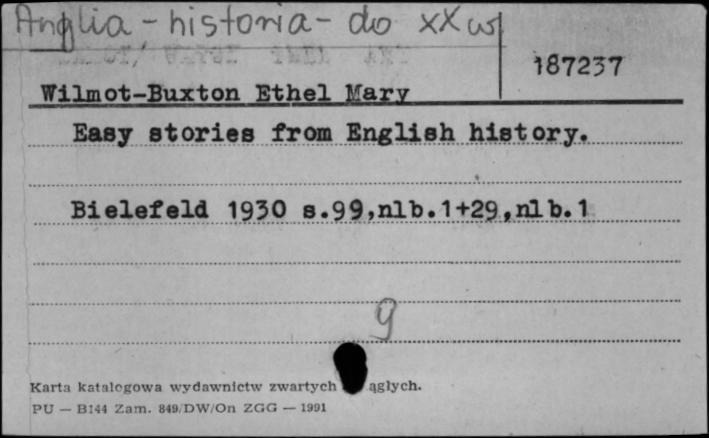 Anglia - historia - do XX w
187237
Wilmot-Buxton Ethel Mary
Easy stories from English history.
Bielefeld 1930 s.99,nlb.1+29,nlb.1
g
Karta katalogowa wydawnictw zwartych ągłych.
PU — B144 Zam. 849/DW/On ZGG — 1991